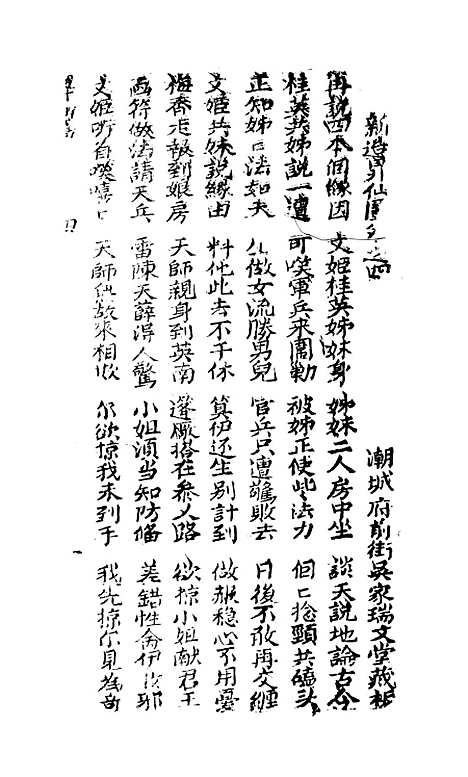 新造引仙圖 之四 潮城府前街吳家瑞文堂藏板
再說四本個緣因 文姬桂英姊妹身 姊妹二人房中坐 談天說地論古今
桂英共姊說一遭 可笑軍兵來圍勦 被姊正使些法力 個匕捻頸共磕头
正知姊匕法如天 做女流勝男兒 官兵只遭驚敗去 日後不敢再交纏
文姬共妹說緣由 料他此去不干休 算伊还生別計到 做賴稳心不用憂
梅香走報到娘房 天師親身到英南 蓬廠搭在叅人路 欲掠小姐献君王
画符做法請天兵 雷陳天薛得人驚 小姐須当知防俻 差錯性命伊 邪
文姬听旨嘆嘻匕 天師無故來相欺 尔欲掠我未到手 我先掠尔見為奇